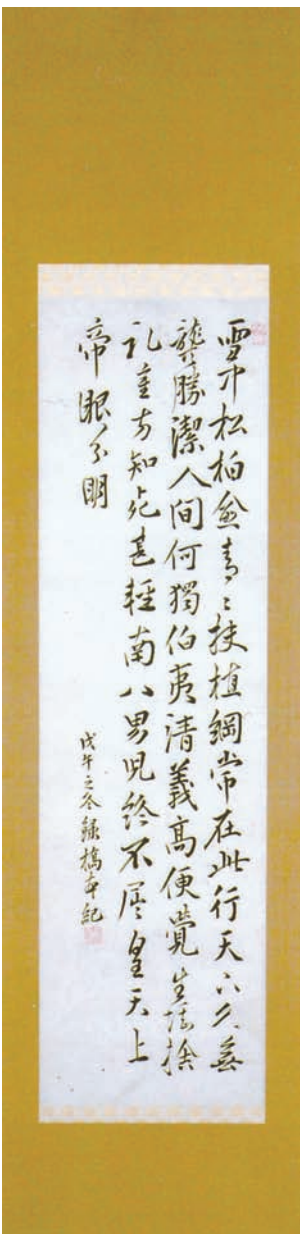 雪中松柏愈青々扶植綱常在此行天下久無
龔勝潔人間何獨伯夷清義高便覺生堪捨
礼重方知死甚輕南八男兒終不屈皇天上
帝眼分明
戊午之冬録橋本紀